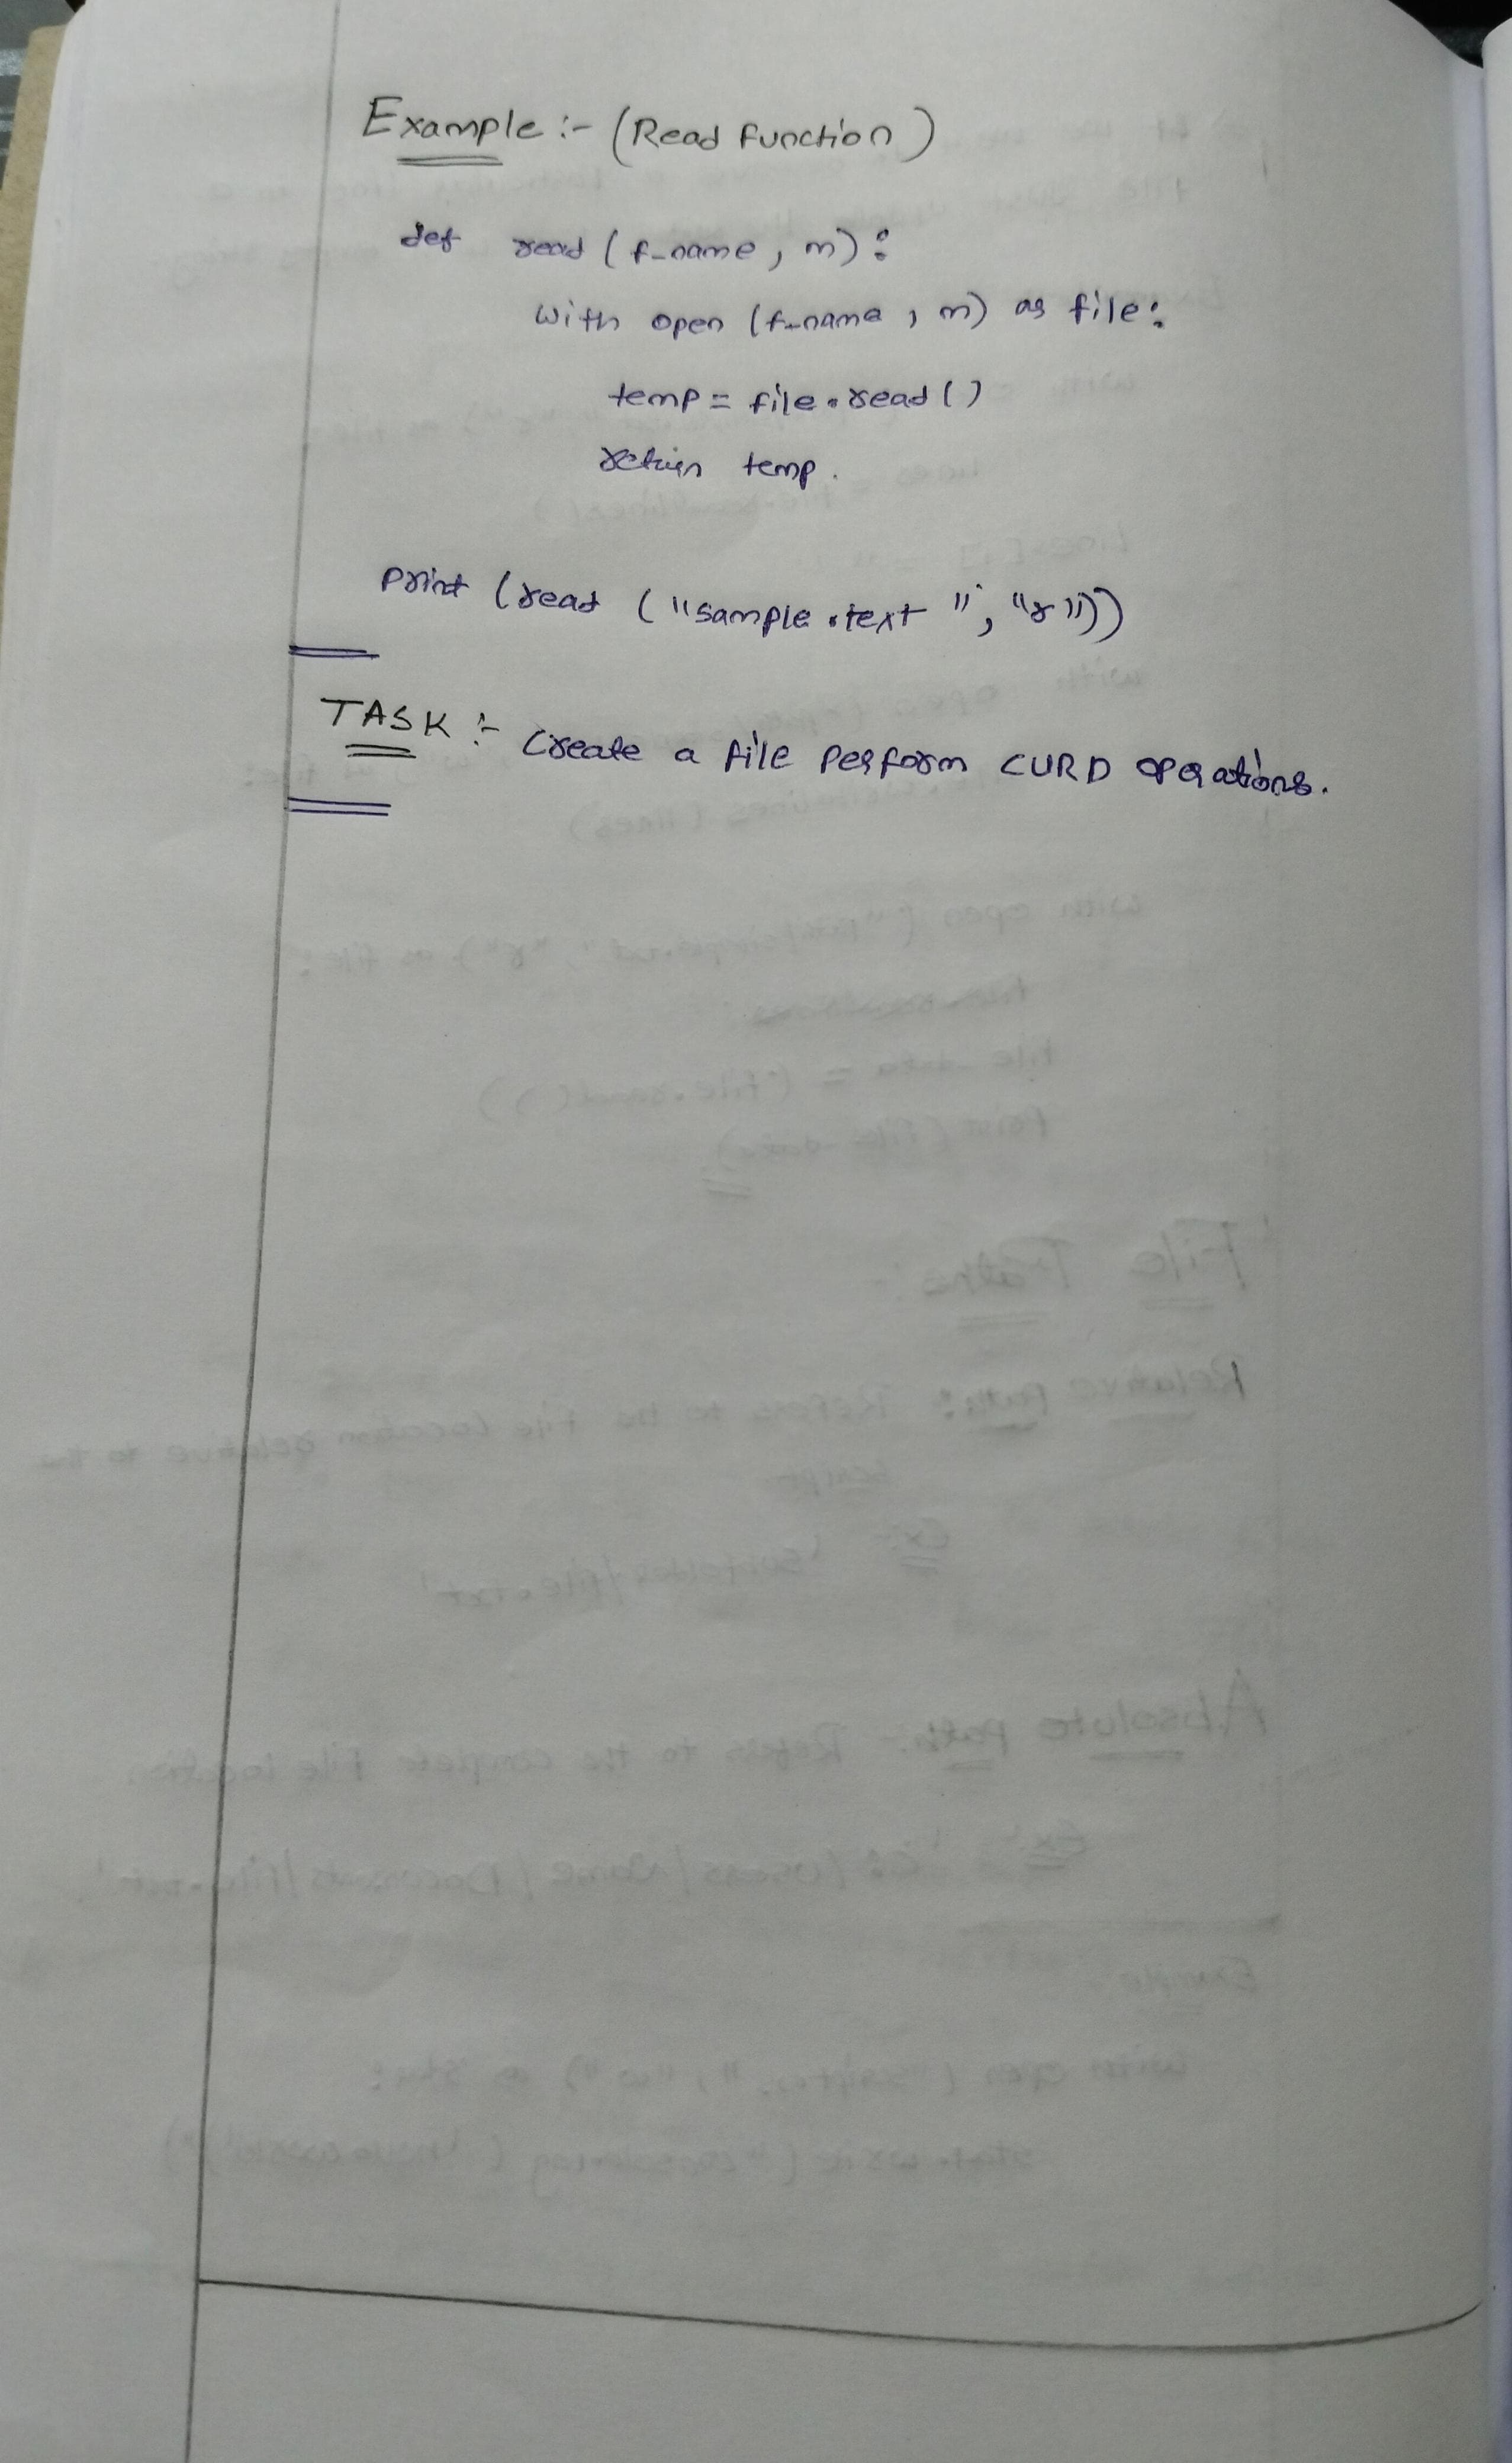 Example :- (Read Function)
def read (f_name, m):
with open (f_name, m) as file:
temp = file.read()
return temp.
print (read ("sample.text", "r"))
TASK :- Create a file perform CURD operations.